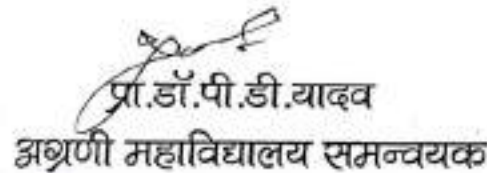 प्रा.डॉ.पी.डी.यादव
अग्रणी महाविद्यालय समन्वयक